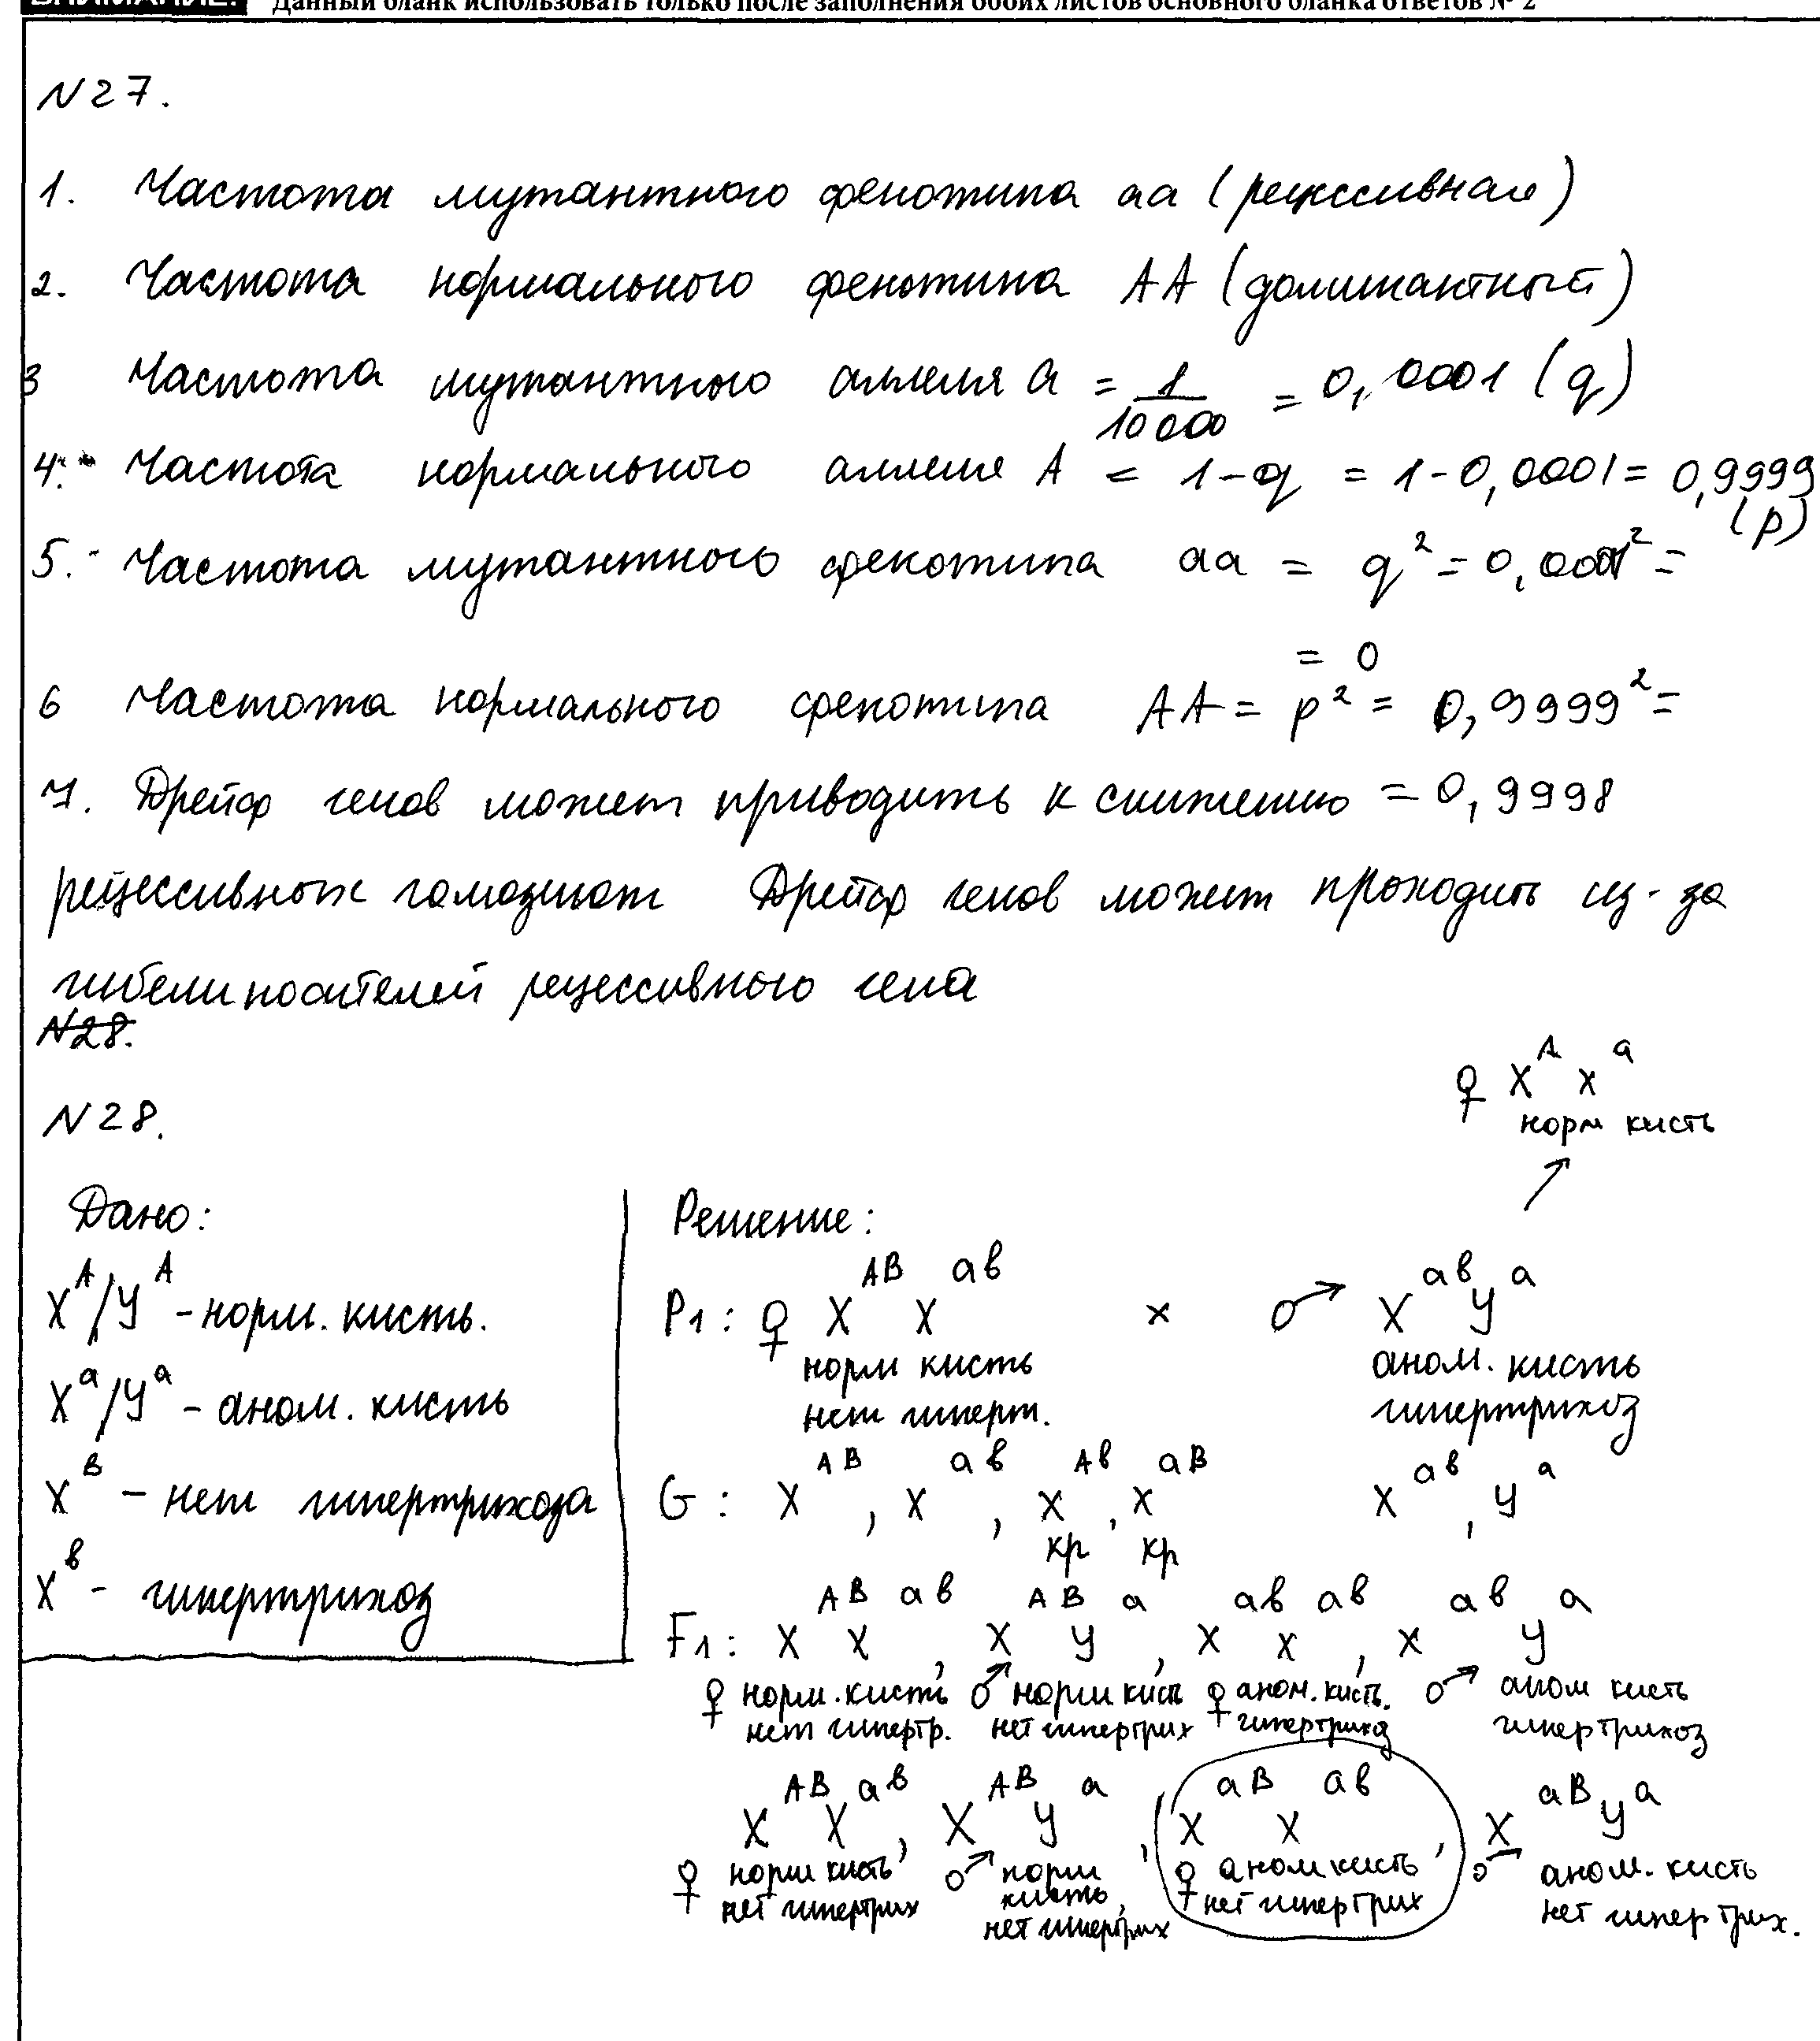 Данный бланк использовать только после заполнения обоих листов основного бланка ответов № 2
N 27.
1. Частота мутантного фенотипа aa (рецессивная)
2. Частота нормального фенотипа AA (доминантный)
3 Частота мутантного аллеля a = 1/10000 = 0,0001 (q)
4. Частота нормального аллеля A = 1-q = 1-0,0001 = 0,9999 (p)
5. Частота мутантного фенотипа aa = q² = 0,0001² =
= 0
6 Частота нормального фенотипа AA = p² = 0,9999² =
7. Дрейф генов может приводить к снижению = 0,9998
рецессивных гомозигот Дрейф генов может проходить из-за
гибели носителей рецессивного гена
N28.
♀ X^A X^a
норм кисть
N 28.
Дано:
X^A/Y^A - норм. кисть.
X^a/Y^a - аном. кисть
X^B - нет гипертрихоза
X^b - гипертрихоз
Решение:
P1: ♀ X^AB X^ab × ♂ X^ab Y^a
норм кисть аном. кисть
нет гиперт. гипертрихоз
G: X^AB, X^ab, X^Ab, X^aB X^ab, Y^a
кр кр
F1: X^AB X^ab, X^AB Y^a, X^ab X^ab, X^ab Y^a
♀ норм. кисть ♂ норм кисть ♀ аном. кисть. ♂ аном кисть
нет гипертр. нет гипертрих гипертрихоз гипертрихоз
X^AB X^ab, X^AB Y^a, X^aB X^ab, X^aB Y^a
♀ норм кисть ♂ норм кисть, ♀ аном кисть ♂ аном. кисть
нет гипертрих нет гипертрих нет гипертрих нет гипертрих.